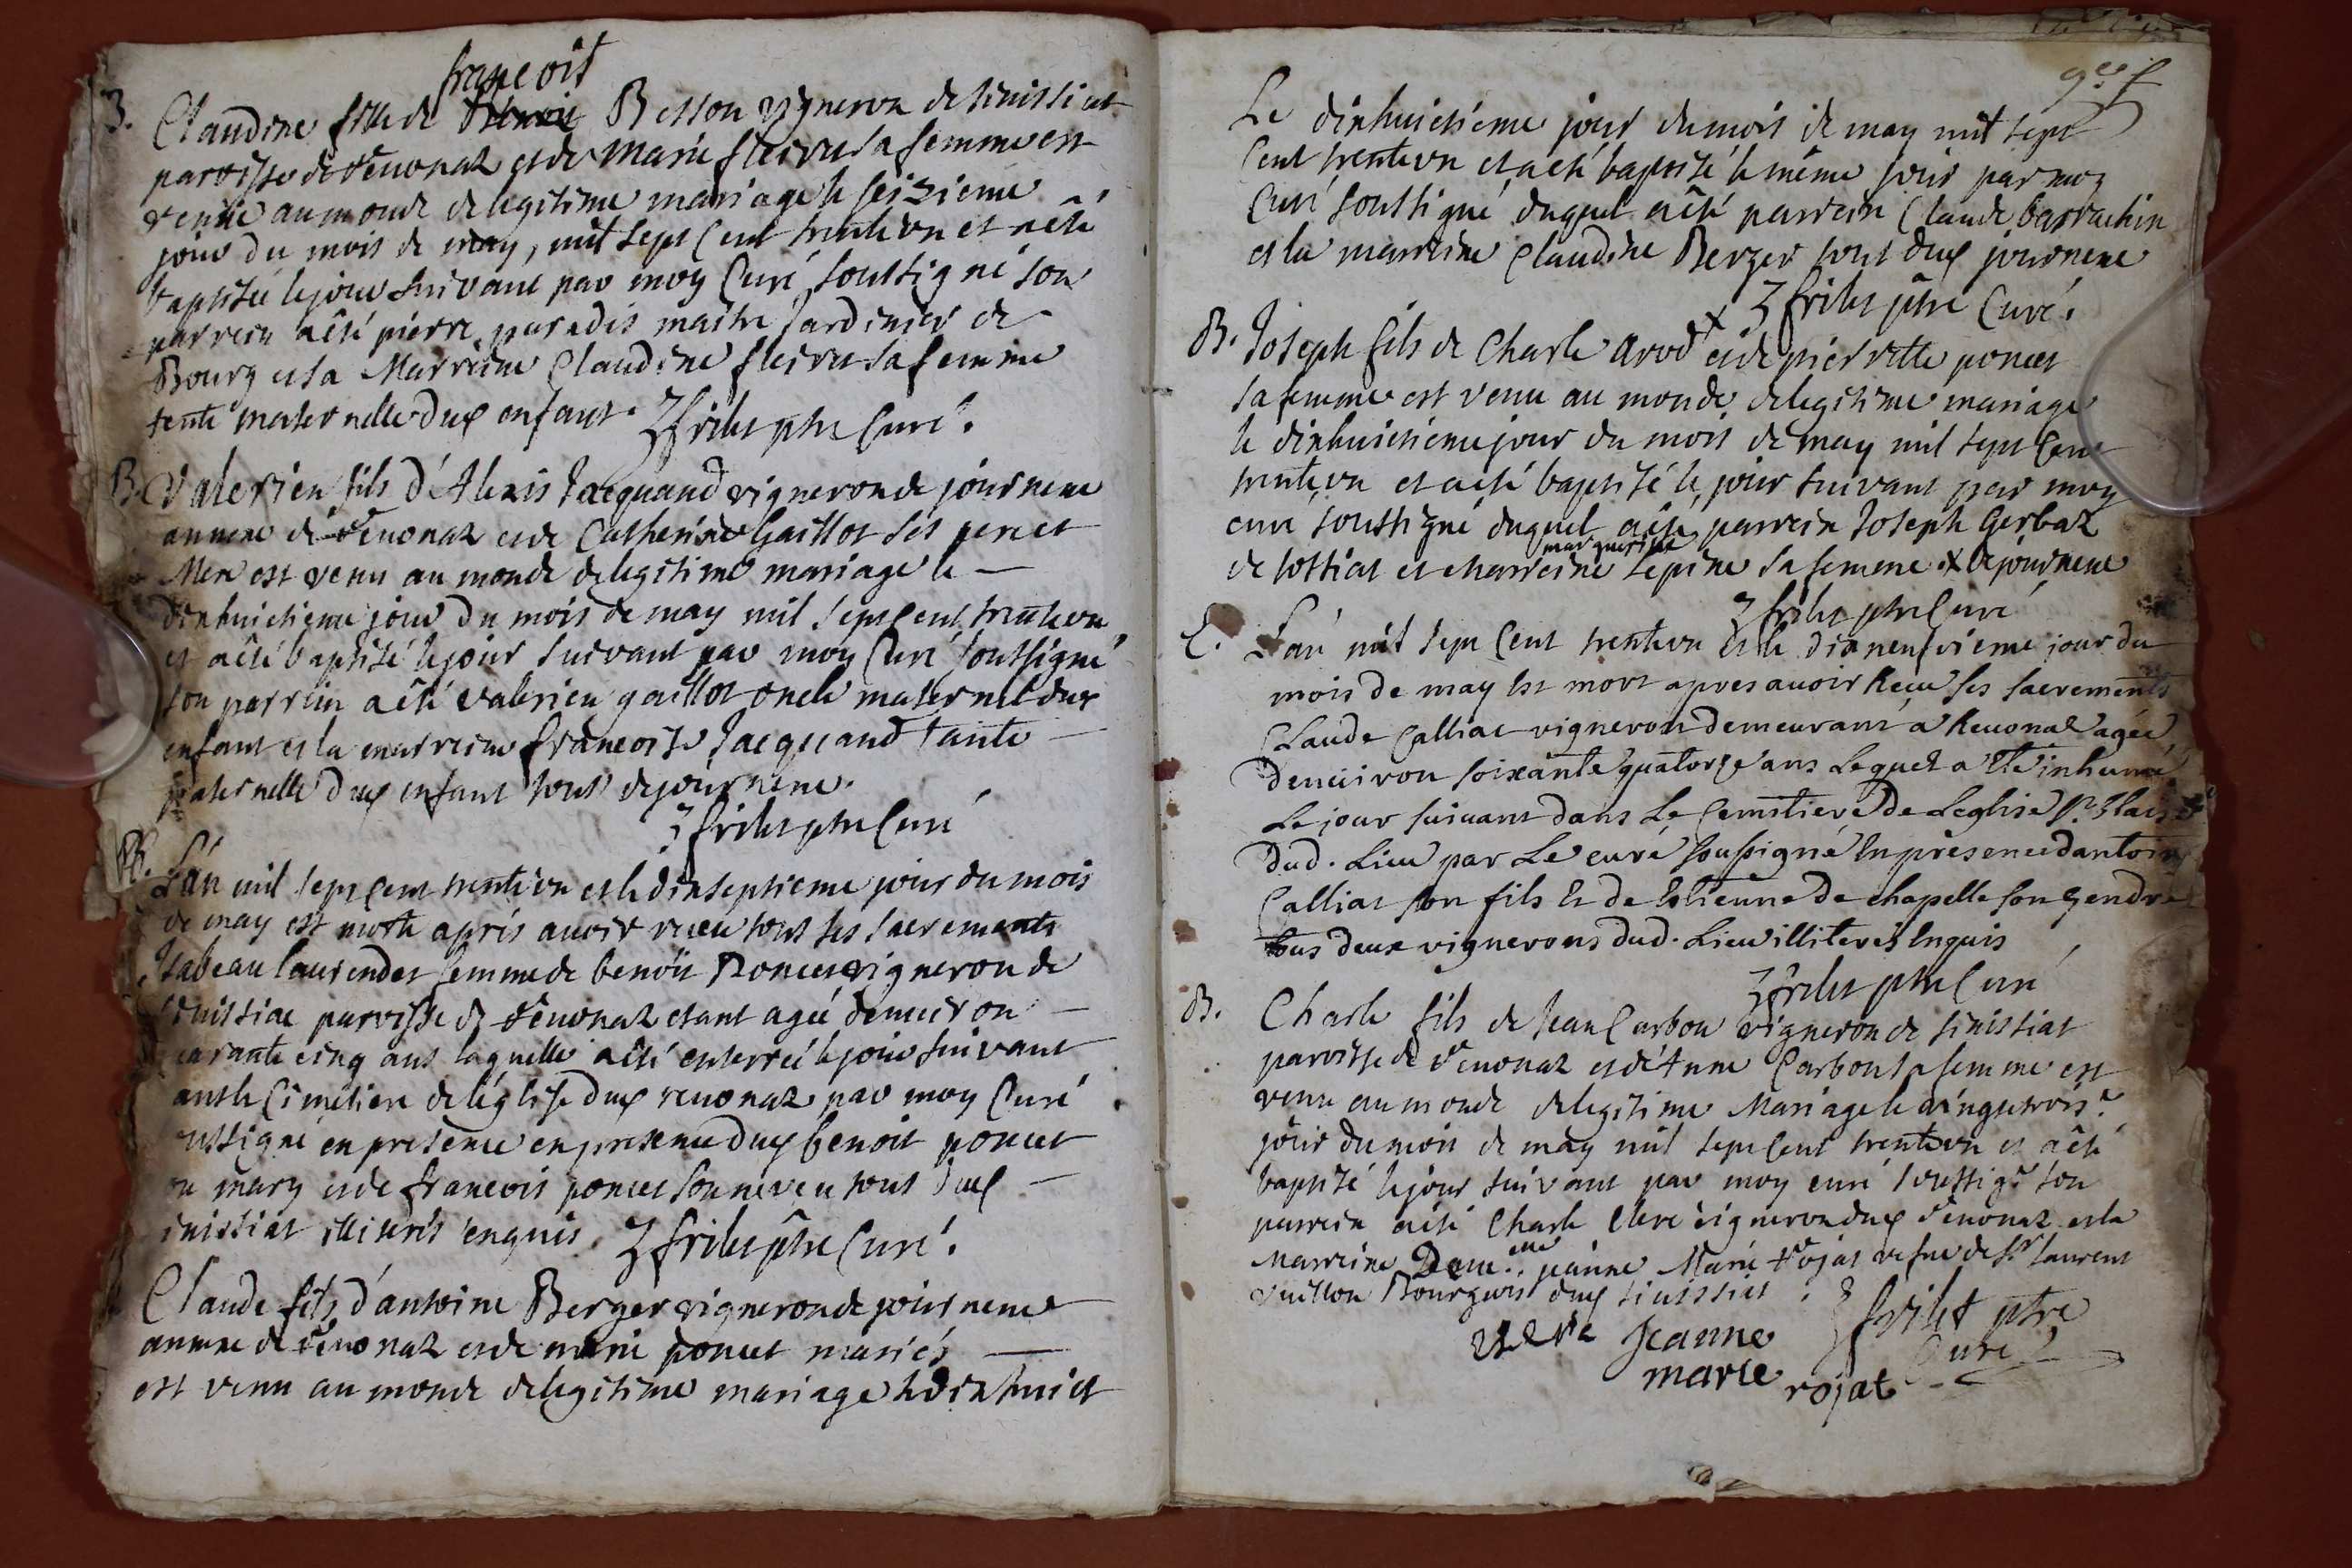 françois
B. Claudine fille de Besson vigneron de sinissiat
paroisse de revonaz et de Marie fleirus sa femme est
venüe au monde de legitime mariage le seizieme
jour du mois de may, mil sept Cent trente vn et a été
baptisée le jour suivant par moy Curé soussigné son
parrein a été pierre paradis maitre jardinier de
Bourg et sa Marreine Claudine fleirus sa femme
tente maternelle dud enfant. frilet ptre Curé.
B. Valerien fils d'Alexis Jacquand vigneron de journene
annexe de revonaz et de Catherine Gaillot ses pere et
Mere est venu au monde de legitime mariage le —
dixhuictieme jour du mois de may mil sept Cent trente vn
et a été baptisé le jour suivant par moy Curé soussigné
son parrein a été valerien gaillot oncle maternel dud
enfant et la marreine françoise Jacquand tante —
paternelle dud enfant tous de journene.
frilet ptre Curé
L'an mil sept Cent trente vn et le dixseptieme jour du mois
de may est morte après avoir receu tous ses sacrements
Isabeau laurendet femme de benoit Poncet vigneron de
sinissiat paroisse de revonaz etant agée denviron —
quarante cinq ans laquelle a été enterrée le jour suivant
dans le Cimetiere de l'église dud revonaz par moy Curé
soussigné en presence en presence dud benoit poncet
son mary et de françois poncet son neveu tous dud —
sinissiat illiterés enquis. frilet ptre Curé.
Claude fils d'antoine Berger vigneron de journene
annexe de revonaz et de marie poncet mariés —
est venu au monde de legitime mariage le dixhuict
Le dixhuictieme jour du mois de may mil sept
Cent trente vn et a été baptisé le même jour par moy
Curé soussigné duquel a été parrein Claude barrachin
et la marreine Claudine Berger tous dud journene
frilet ptre Curé.
B. Joseph fils de Charle avod x et de pierrette poncet
sa femme est venu au monde de legitime mariage
le dixhuictieme jour du mois de may mil sept Cent
trente vn et a été baptisé le jour suivant par moy
curé soussigné duquel a été parrein Joseph Gerbaz
marguerite
de sossiat et Marreine lepine sa femme x de journene
frilet ptre Curé
L'an mil sept Cent trente vn et le dix neufvieme jour du
mois de may Est mort apres auoir Receu ses sacrements
Claude Calliat vigneron demeurant a Reuonaz agée
denuiron soixante quatorze ans Lequel a Eté inhumé
Le jour suiuant dans Le Cemitiere De Leglise St. blaise
Dud. Lieu par Le curé soussigné En presence dantoine
Calliat son fils Et de Etienne De chapelle son gendre
tous deux vignerons dud. Lieu illiteres Enquis
frilet ptre Curé
B. Charle fils de Jean Carbon vigneron de sinissiat
paroisse de revonaz et d'Anne Carbon sa femme est
venu au monde de legitime Mariage le vingt trois.e
jour du mois de may mil sept Cent trente vn et a été
baptisé le jour suivant par moy curé soussig.é son
parrein a été Charle Clere vigneron dud revonaz et la
Marreine Dem.elle jeanne Marie rojat vefue de Sr laurent
vuillon Bourgeois dud sinissiat.
frilet ptre
Curé
Jeanne
marie rojat